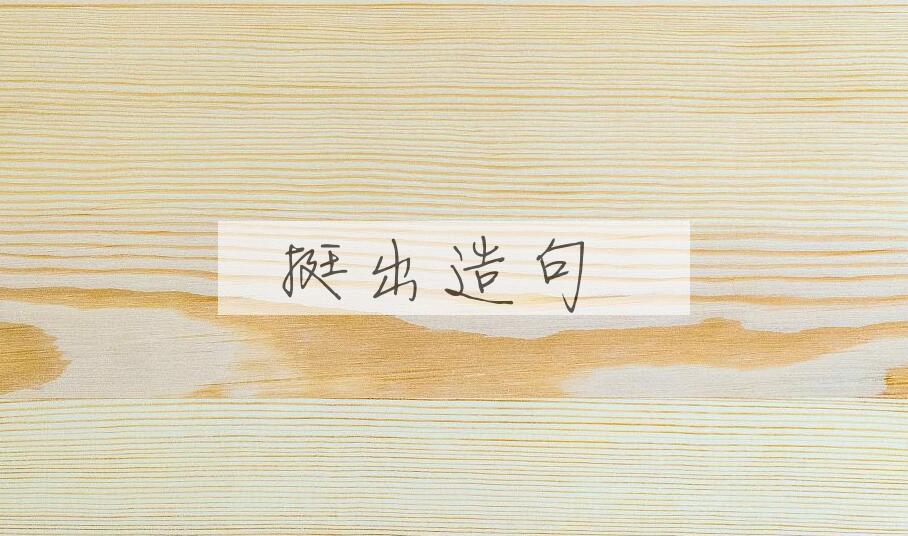 挺出造句